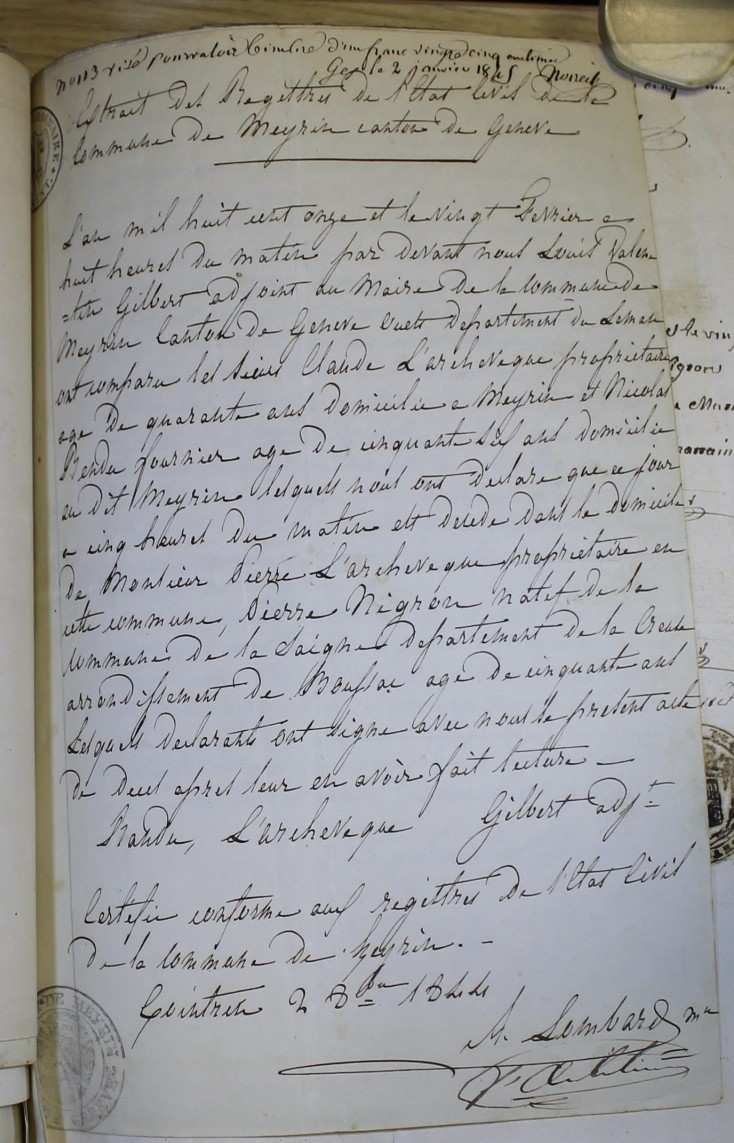 No 113 visé pour valoir timbre d'un franc vingt cinq centimes
Gex le 2 janvier 1845
Extrait des Regettres de l'Etat Civil de la
Commune de Meyrin canton de Geneve
L'an mil huit cent onze et le vingt Fevrier a
huit heures du matin par devant nous Louis Valen
=tin Gilbert adjoint au Maire de la Commune de
Meyrin Canton de Geneve departement du Leman
ont comparu les sieurs Claude L'archeveque proprietaire
age de quarante ans domicilie a Meyrin et Nicolas
Randu fournier age de cinquante six ans domicilie
au dit Meyrin lesquels nous ont declare que ce jour
a cinq heures du matin est decede dans le domicile
de Monsieur Pierre L'archeveque proprietaire en
cette commune, Pierre Nigron natif de la
Commune de la Saigne departement de la Creuse
arrondissement de Boussac age de cinquante ans
Lesquels declarants ont signe avec nous le present acte
de deces apres leur en avoir fait lecture —
Randu, L'archeveque Gilbert adjt
Certifie conforme aux regettres de l'Etat Civil
de la commune de Meyrin. -
Cointrin 2 8bre 1844
M. Lombard
DE MEYRIN